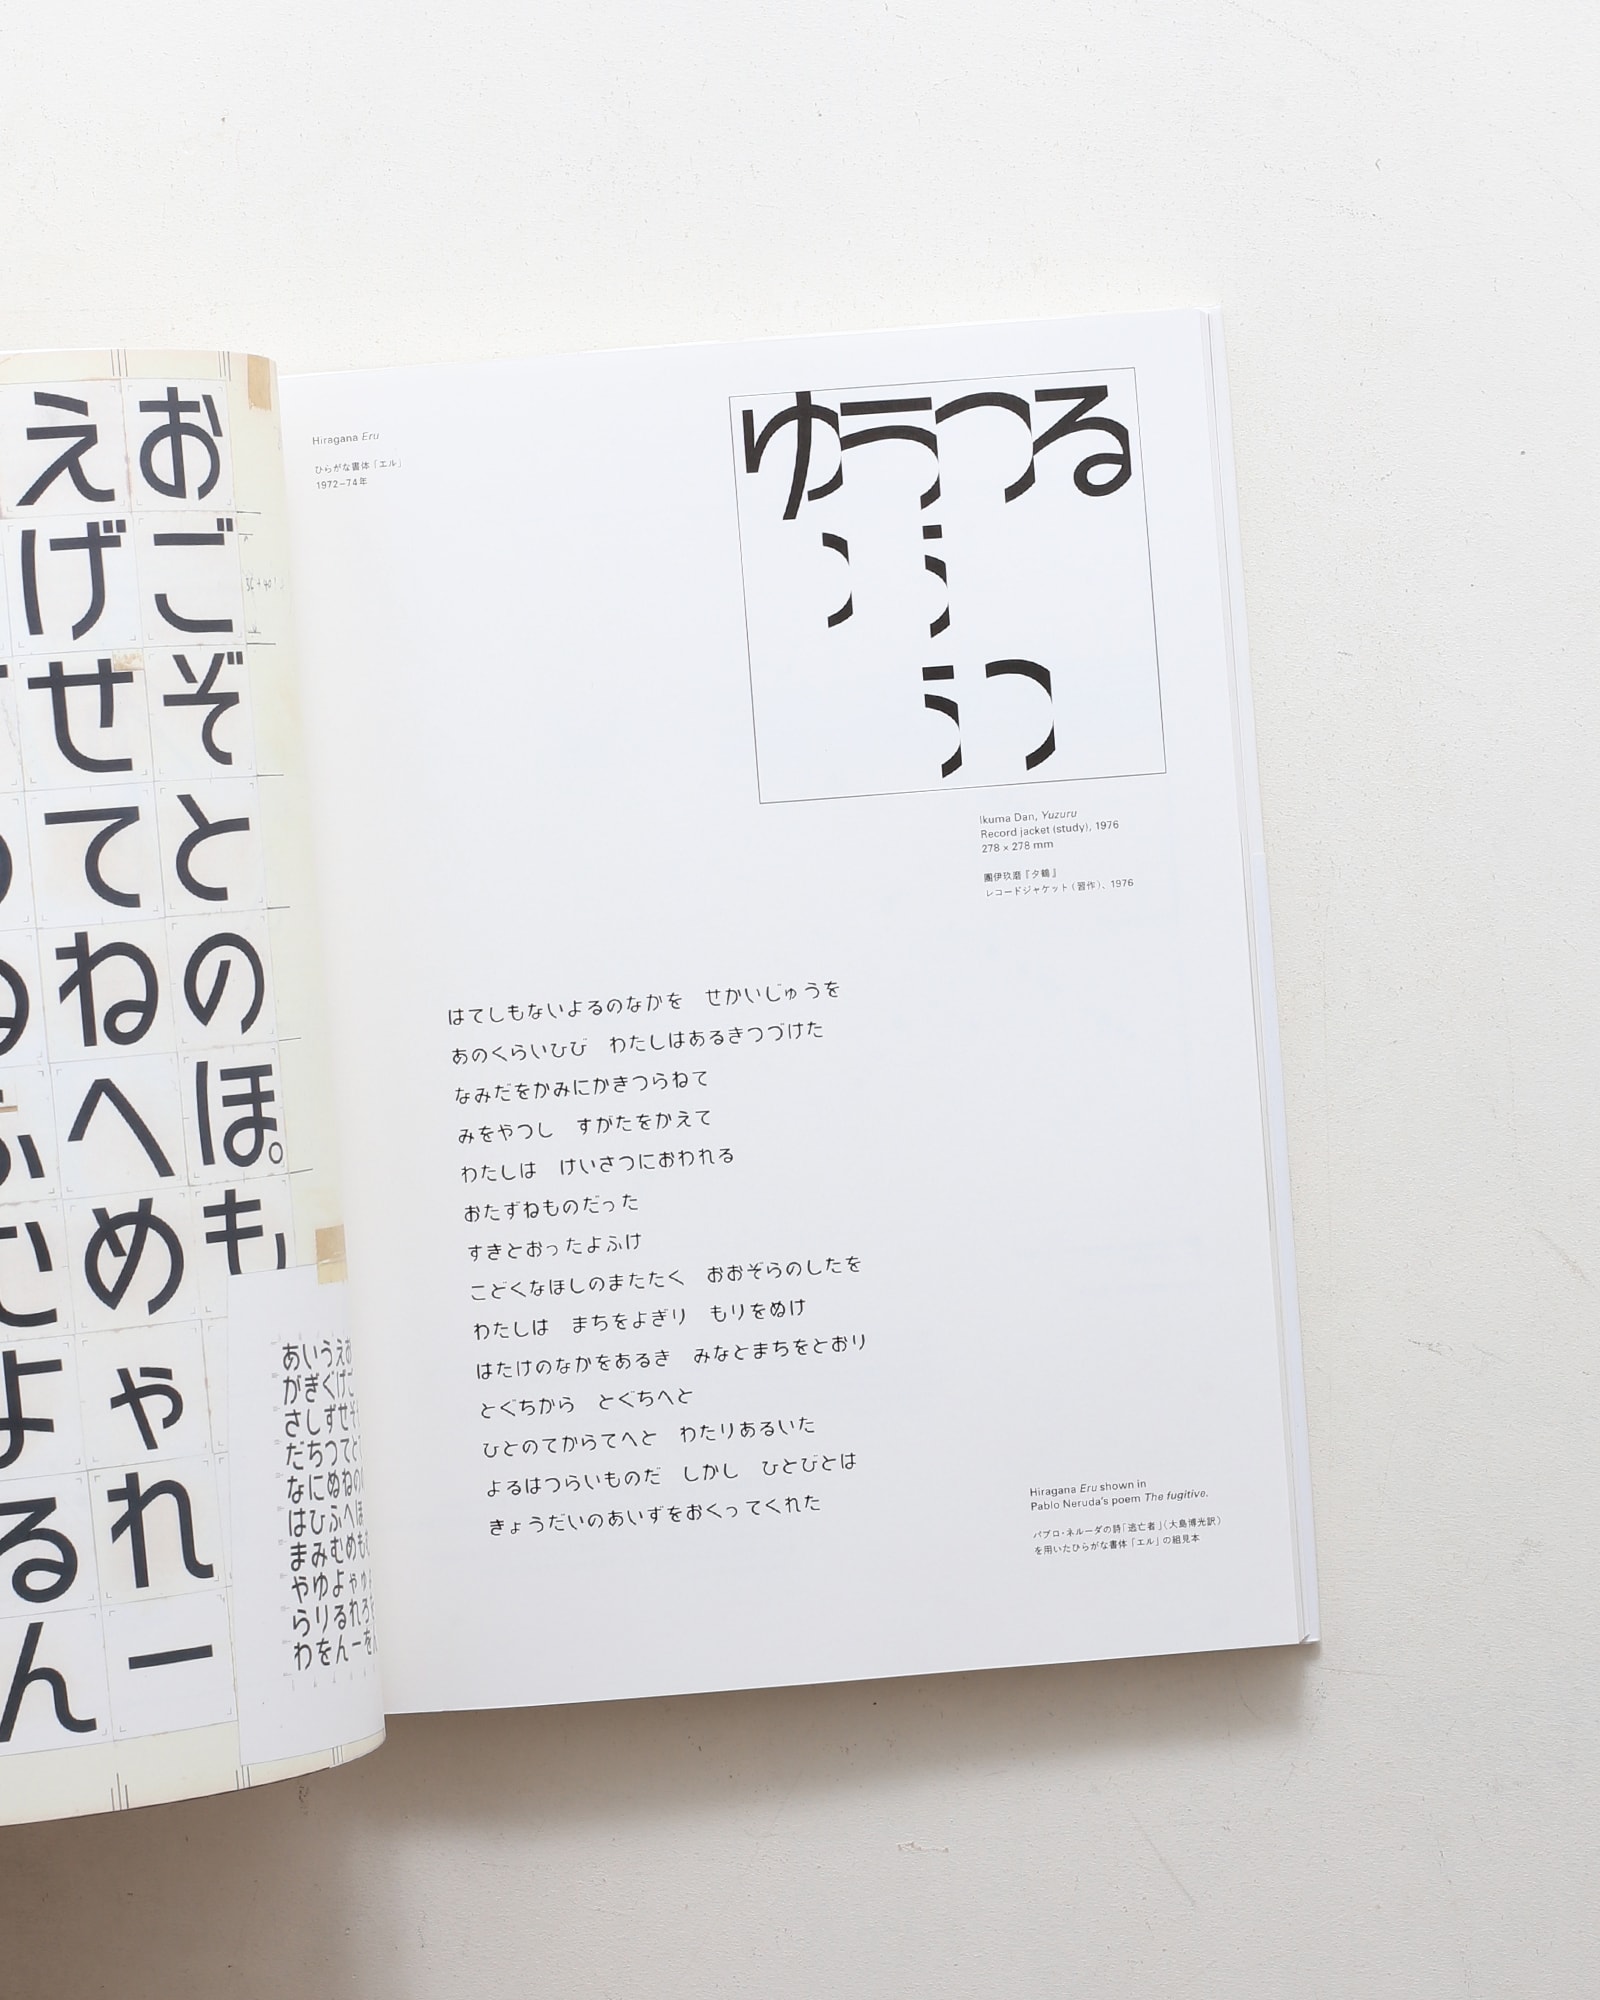 えお
げご
せぞ
てと
ねの
へほ。
めも
ゃ
るれ
んー
あいうえお
がぎぐげご
さしずせそ
だちつてと
なにぬねの
はひふへほ
まみむめも
やゆよゃゅ
らりるれろ
わをんーを
Hiragana Eru
ひらがな書体「エル」
1972–74年
ゆうつる
う
うつ
Ikuma Dan, Yuzuru
Record jacket (study), 1976
278 × 278 mm
團伊玖磨『夕鶴』
レコードジャケット(習作)、1976
はてしもないよるのなかを　せかいじゅうを
あのくらいひび　わたしはあるきつづけた
なみだをかみにかきつらねて
みをやつし　すがたをかえて
わたしは　けいさつにおわれる
おたずねものだった
すきとおったよふけ
こどくなほしのまたたく　おおぞらのしたを
わたしは　まちをよぎり　もりをぬけ
はたけのなかをあるき　みなとまちをとおり
とぐちから　とぐちへと
ひとのてからてへと　わたりあるいた
よるはつらいものだ　しかし　ひとびとは
きょうだいのあいずをおくってくれた
Hiragana Eru shown in
Pablo Neruda's poem The fugitive.
パブロ・ネルーダの詩「逃亡者」(大島博光訳)
を用いたひらがな書体「エル」の組見本